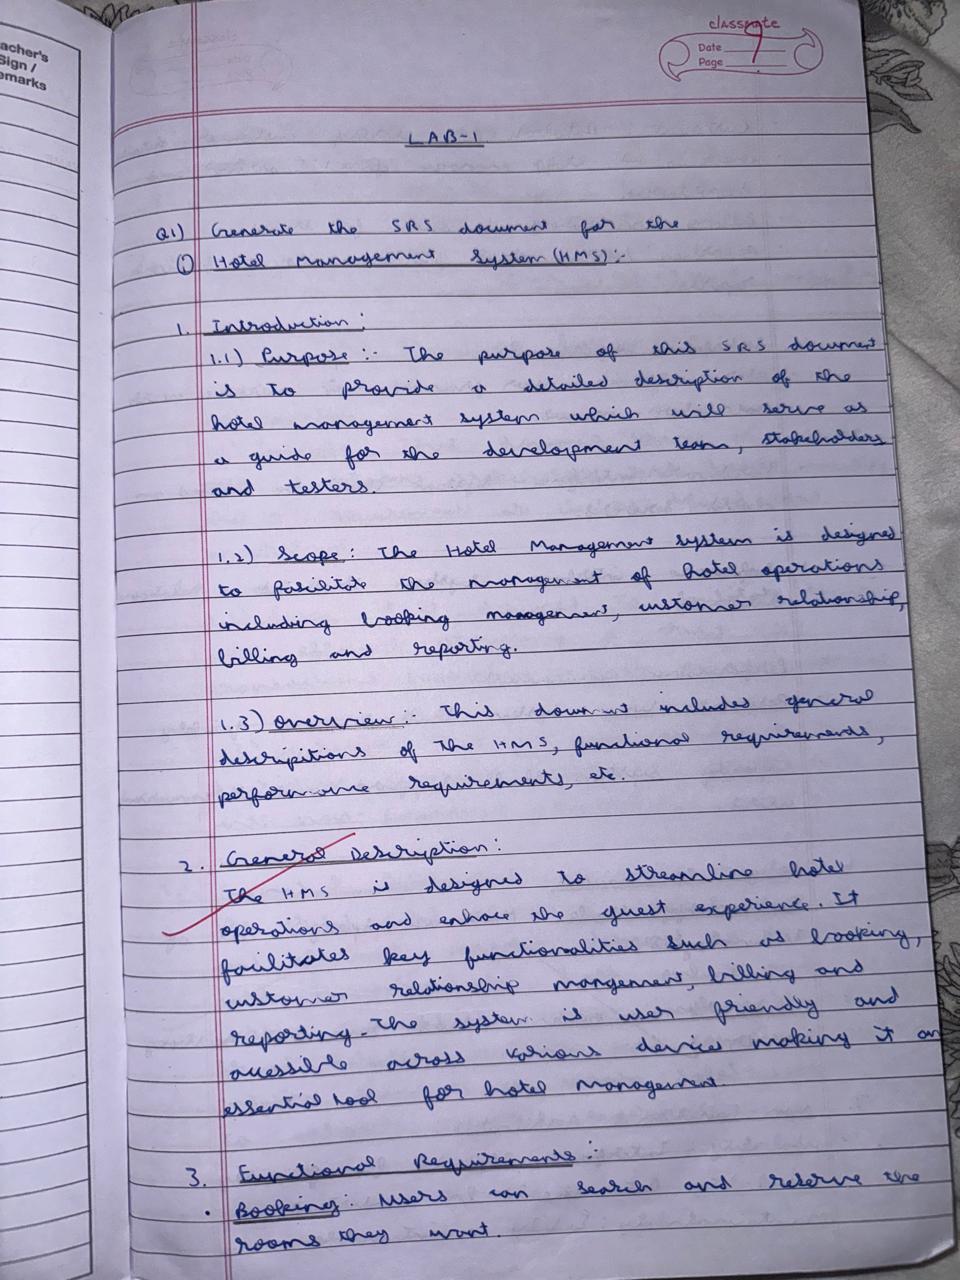 acher's
Sign /
emarks
classmate
Date
Page
9
LAB-1
Q1) Generate the SRS document for the
① Hotel Management System (HMS):-
1. Introduction:
1.1) Purpose:- The purpose of this SRS document
is to provide a detailed description of the
hotel management system which will serve as
a guide for the development team, stakeholders
and testers.
1.2) Scope: The Hotel Management system is designed
to facilitate the management of hotel operations
including booking management, customer relationship,
billing and reporting.
1.3) Overview:- This document includes general
descripitions of the HMS, functional requirements,
performance requirements, etc.
2. General Description:
The HMS is designed to streamline hotel
operations and enhace the guest experience. It
facilitates key functionalities such as booking,
customer relationship mangement, billing and
reporting. The system is user friendly and
accessible across various devices making it an
essential tool for hotel management
3. Functional Requirements:
• Booking: Users can search and reserve the
rooms they want.